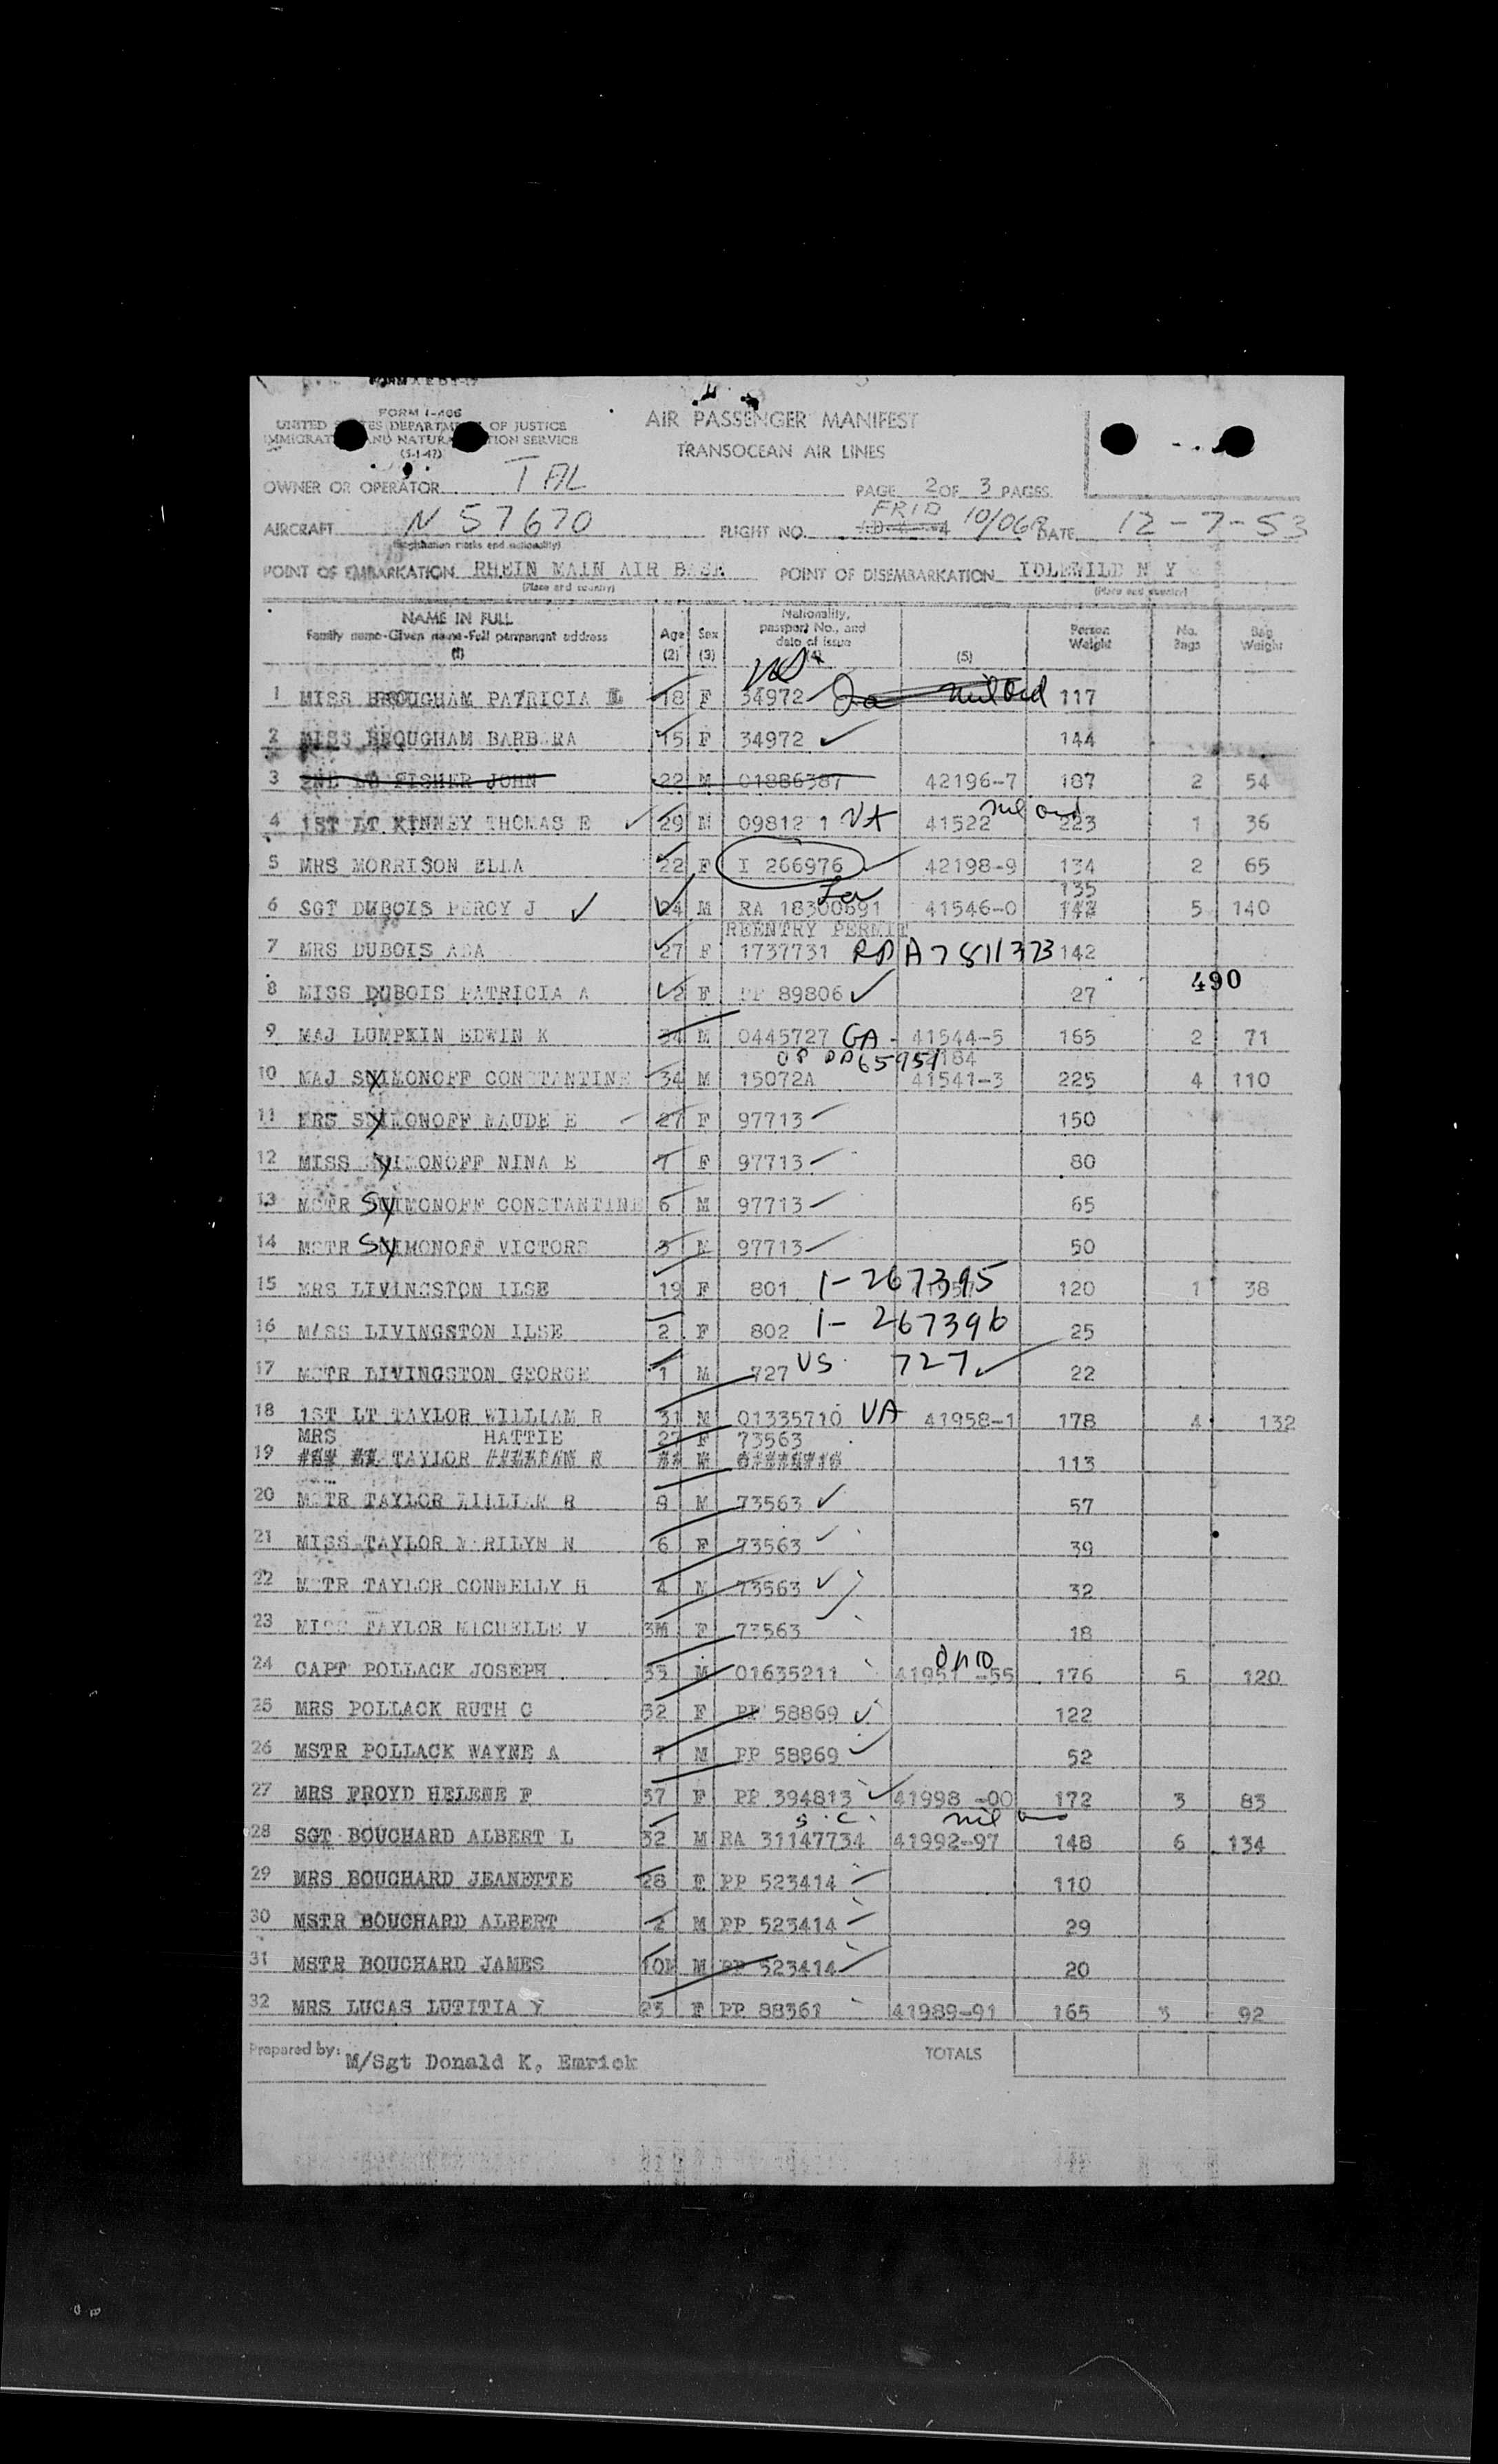 FORM I-466
UNITED STATES DEPARTMENT OF JUSTICE
IMMIGRATION AND NATURALIZATION SERVICE
(5-1-47)
AIR PASSENGER MANIFEST
TRANSOCEAN AIR LINES
OWNER OR OPERATOR TAL PAGE 2 OF 3 PAGES
AIRCRAFT N 57670 FLIGHT NO. FRID 10/068 DATE 12-7-53
(Registration marks and nationality)
POINT OF EMBARKATION RHEIN MAIN AIR BASE POINT OF DISEMBARKATION IDLEWILD N Y
(Place and country) (Place and country)
NAME IN FULL Family name-Given name-Full permanent address (1) Age (2) Sex (3) Nationality, passport No., and date of issue (4) (5) Person Weight No. Bags Bag Weight
1 MISS BROUGHAM PATRICIA L 18 F 34972 117
2 MISS BROUGHAM BARBARA 15 F 34972 144
3 2ND LT FISHER JOHN 22 M 01886387 42196-7 187 2 54
4 1ST LT KINNEY THOMAS E 29 M 09812 1 VA 41522 223 1 36
5 MRS MORRISON ELLA 22 F I 266976 42198-9 134 2 65
135
6 SGT DUBOIS PERCY J 24 M RA 18300691 41546-0 142 5 140
REENTRY PERMIT
7 MRS DUBOIS ADA 27 F 1737731 RP A7811373 142
490
8 MISS DUBOIS PATRICIA A 2 F PP 89806 27
9 MAJ LUMPKIN EDWIN K 34 M 0445727 GA 41544-5 165 2 71
10 MAJ SYIMONOFF CONSTANTINE 34 M 15072A 41541-3 225 4 110
11 MRS SYIMONOFF MAUDE E 27 F 97713 150
12 MISS SYIMONOFF NINA E 7 F 97713 80
13 MSTR SYIMONOFF CONSTANTINE 6 M 97713 65
14 MSTR SYIMONOFF VICTORS 3 M 97713 50
15 MRS LIVINGSTON ILSE 19 F 801 1-267395 120 1 38
16 M/SS LIVINGSTON ILSE 2 F 802 1-267396 25
17 MSTR LIVINGSTON GEORGE 1 M 727 US 727 22
18 1ST LT TAYLOR WILLIAM R 31 M 01335710 VA 41958-1 178 4 132
MRS HATTIE 27 F 73563
19 TAYLOR R M 113
20 MSTR TAYLOR WILLIAM R 9 M 73563 57
21 MISS TAYLOR MARILYN N 6 F 73563 39
22 MSTR TAYLOR CONNELLY H 4 M 73563 32
23 MISS TAYLOR MICHELLE V 3M F 73563 18
24 CAPT POLLACK JOSEPH 33 M 01635211 OHIO 41951 -55 176 5 120
25 MRS POLLACK RUTH C 32 F PP 58869 122
26 MSTR POLLACK WAYNE A 7 M PP 58869 52
27 MRS FROYD HELENE F 57 F PP 394813 41998 -00 172 3 83
28 SGT BOUCHARD ALBERT L 32 M RA 31147734 41992-97 148 6 134
29 MRS BOUCHARD JEANETTE 28 F PP 523414 110
30 MSTR BOUCHARD ALBERT 2 M PP 523414 29
31 MSTR BOUCHARD JAMES 10M M PP 523414 20
32 MRS LUCAS LUTITIA Y 23 F PP 88361 41989-91 165 3 92
Prepared by: M/Sgt Donald K. Emrick TOTALS